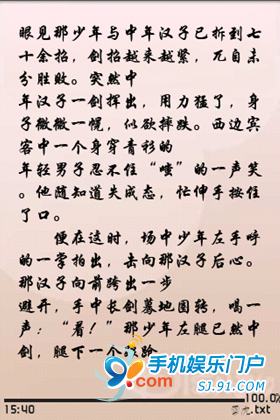 眼见那少年与中年汉子已拆到七
十余招，剑招越来越紧，兀自未
分胜败。突然中
年汉子一剑挥出，用力猛了，身
子微微一幌，似欲摔跌。西边宾
客中一个身穿青衫的
年轻男子忍不住“嗤”的一声笑
。他随知道失成态，忙伸手按住
了口。
便在这时，场中少年左手呼
的一掌拍出，击向那汉子后心。
那汉子向前跨出一步
避开，手中长剑蓦地圈转，喝一
声：“着！”那少年左腿已然中
剑，腿下一个
手机娱乐门户
SJ.91.COM
100.0
15:40
.txt